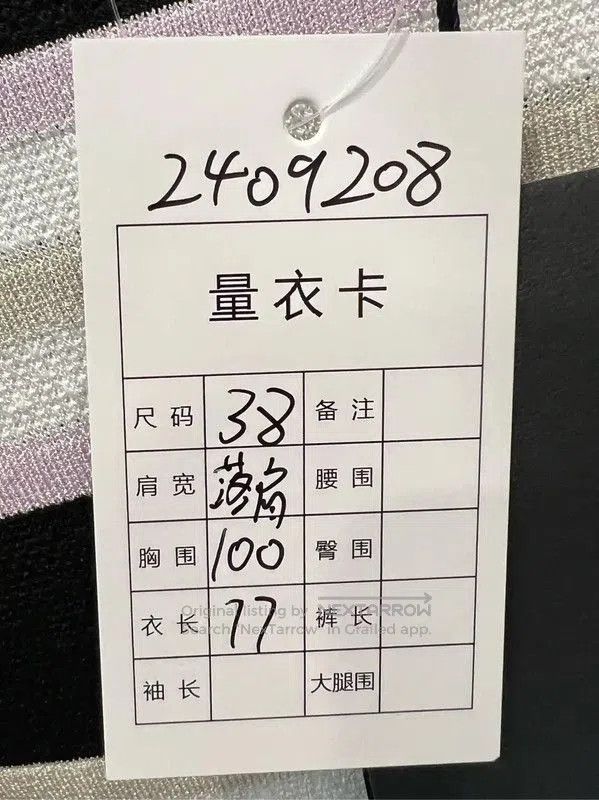 2409208
量衣卡
尺码 38 备注
肩宽 落肩 腰围
胸围 100 臀围
衣长 77 裤长
袖长 大腿围
Original listing by NEXTARROW
Search "NexTarrow" in Grailed app.